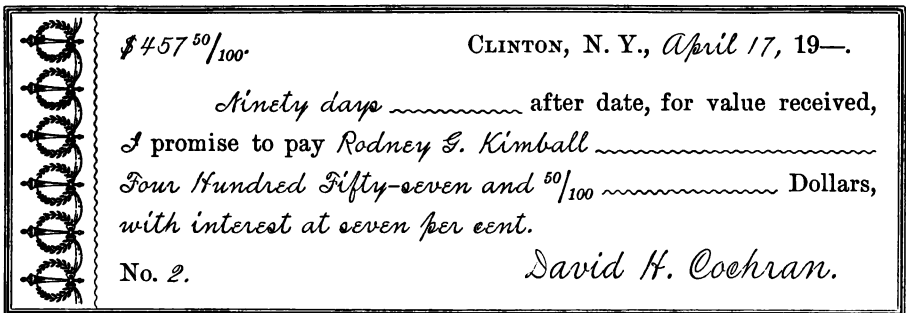 $457 50/100. CLINTON, N. Y., April 17, 19—.
Ninety days after date, for value received,
I promise to pay Rodney G. Kimball
Four Hundred Fifty-seven and 50/100 Dollars,
with interest at seven per cent.
No. 2. David H. Cochran.